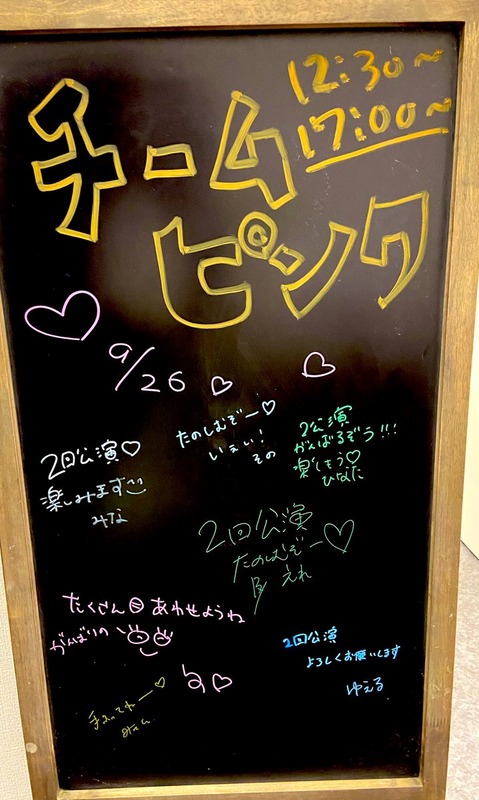 12:30~
17:00~
チーム
ピンク
9/26
たのしむぞー♡
いぇい!
その
2公演
がんばるぞう!!!
楽しもう♡
ひなた
2回公演♡
楽しみます
みな
2回公演
たのしむぞー♡
えれ
たくさん目あわせようね
がんばりの
2回公演
よろしくお願いします
ゆえる